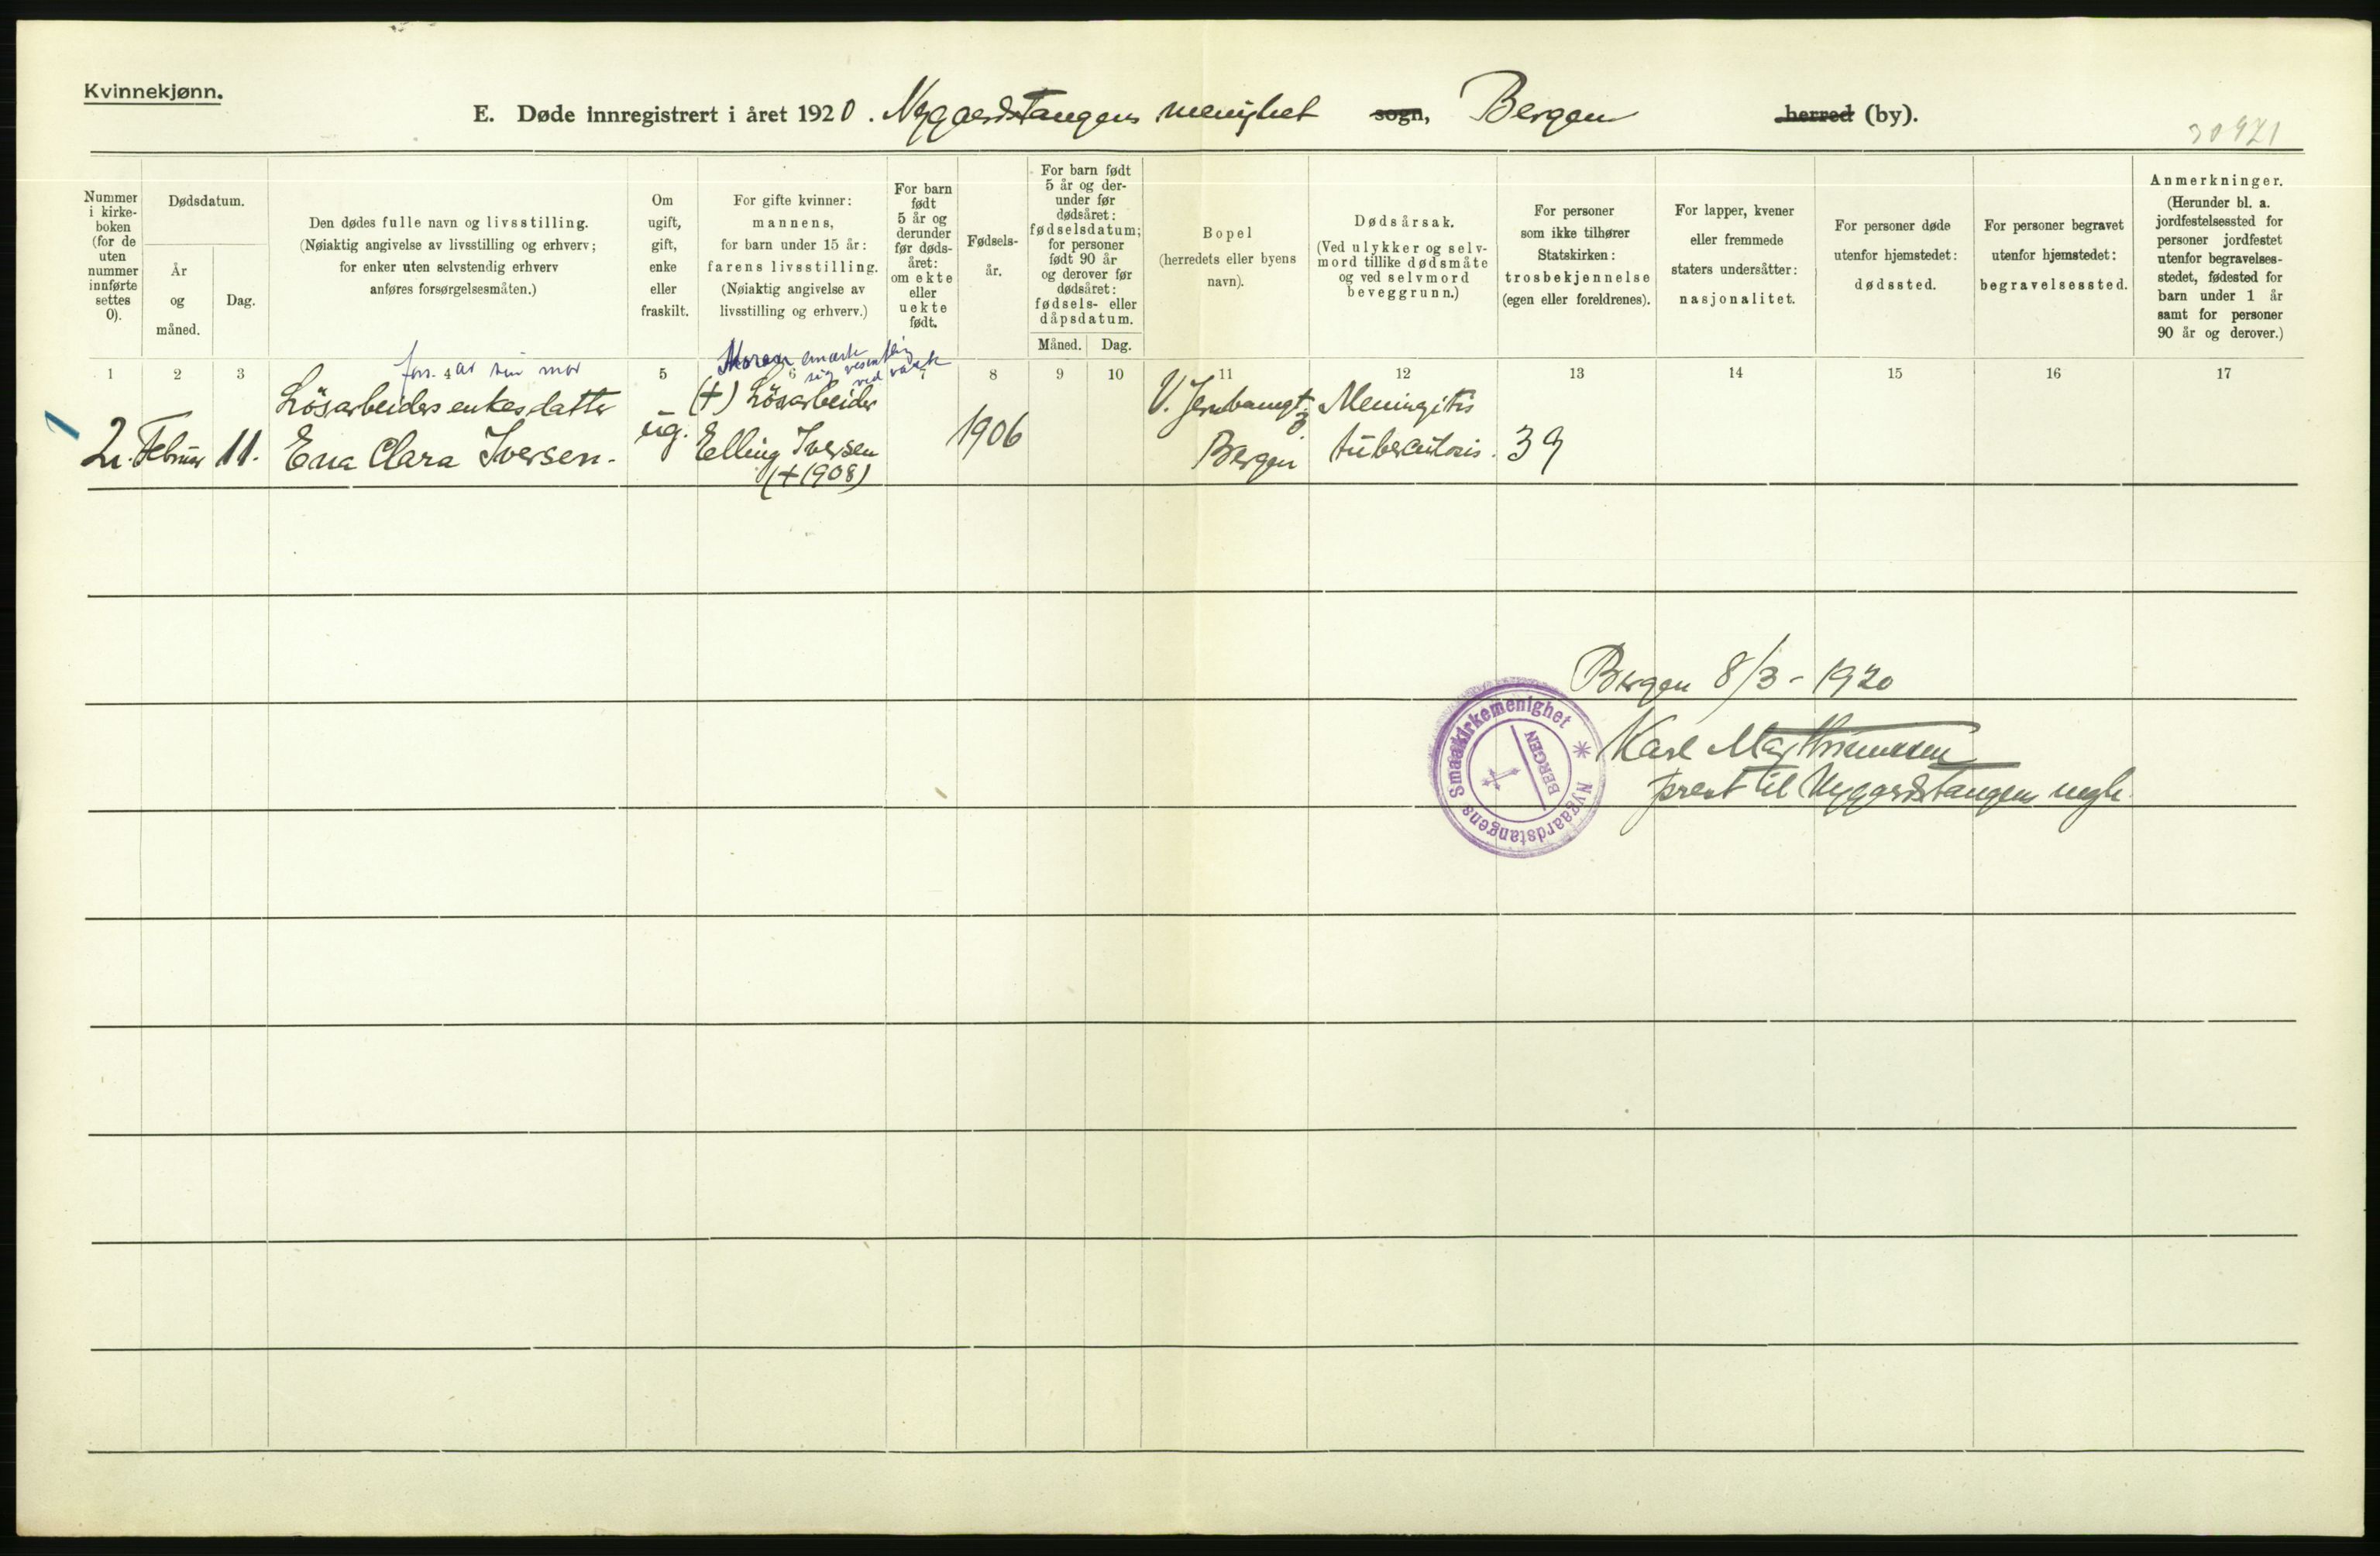 Kvinnekjønn.
E. Døde innregistrert i året 1920. Nygaardstangens menighet sogn, Bergen herred (by).
Nummer i kirke-
boken
(for de
uten
nummer
innførte
settes
0).
Dødsdatum.
År
og
måned.
Dag.
Den dødes fulle navn og livsstilling.
(Nøiaktig angivelse av livsstilling og erhverv;
for enker uten selvstendig erhverv
anføres forsørgelsesmåten.)
Om
ugift,
gift,
enke
eller
fraskilt.
For gifte kvinner:
mannens,
for barn under 15 år:
farens livsstilling.
(Nøiaktig angivelse av
livsstilling og erhverv.)
For barn
født
5 år og
derunder
før døds-
året:
om ekte
eller
uekte
født.
Fødsels-
år.
For barn født
5 år og der-
under før
dødsåret:
fødselsdatum;
for personer
født 90 år
og derover før
dødsåret:
fødsels- eller
dåpsdatum.
Måned.
Dag.
Bopel
(herredets eller byens
navn).
Dødsårsak.
(Ved ulykker og selv-
mord tillike dødsmåte
og ved selvmord
beveggrunn.)
For personer
som ikke tilhører
Statskirken:
trosbekjennelse
(egen eller foreldrenes).
For lapper, kvener
eller fremmede
staters undersåtter:
nasjonalitet.
For personer døde
utenfor hjemstedet:
dødssted.
For personer begravet
utenfor hjemstedet:
begravelsessted.
Anmerkninger.
(Herunder bl. a.
jordfestelsessted for
personer jordfestet
utenfor begravelses-
stedet, fødested for
barn under 1 år
samt for personer
90 år og derover.)
1 2 3 4 5 6 7 8 9 10 11 12 13 14 15 16 17
fors. av sin mor
Moren ernærte
sig
ved vask
1
2. Februar 11.
Løsarbeiders enkes datter
Ena Clara Iversen.
ug.
(+) Løsarbeider
Elling Iversen
(+1908)
1906
V. Jernbanegt.
Bergen
Meningitis
tuberculosis.
39
Bergen 8/3 - 1920
prest til Nygaardstangens mgh.
Nygaardstangens Smaakirkemenighet
BERGEN